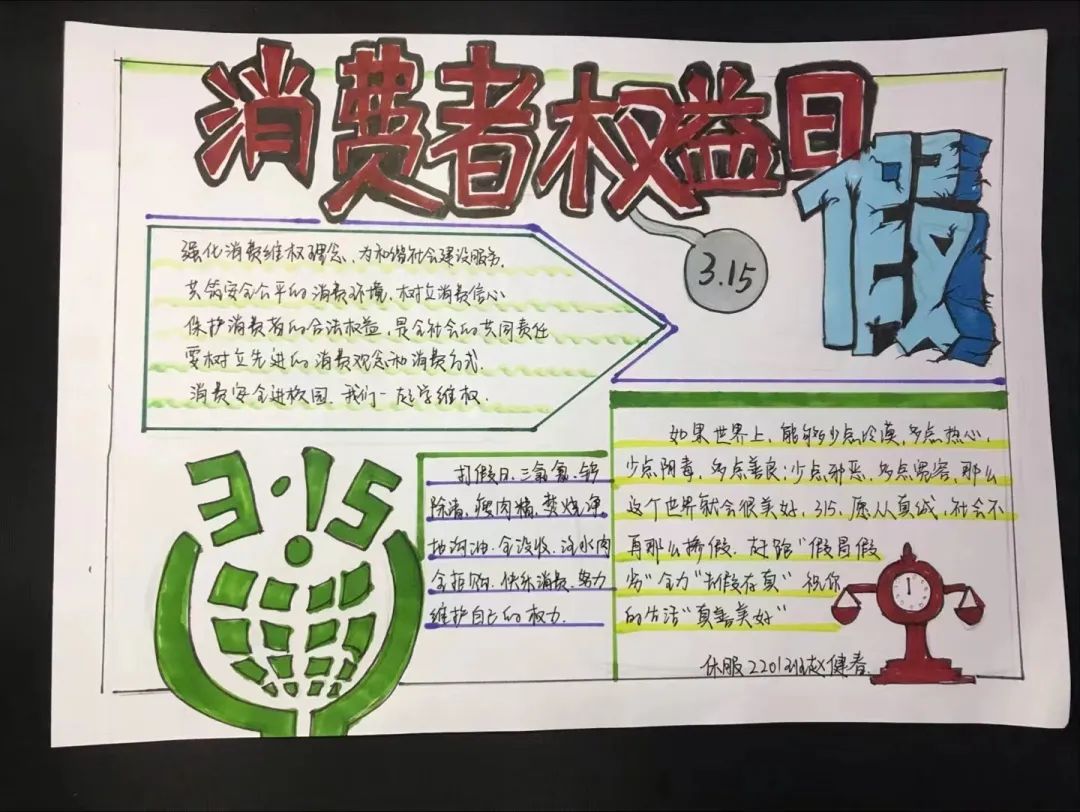 消费者权益日
假
3.15
强化消费维权理念、为和谐社会建设服务.
共筑安全公平的消费环境.树立消费信心
保护消费者的合法权益,是全社会的共同责任
要树立先进的消费观念和消费方式.
消费安全进校园.我们一起学维权.
3·15
打假日.三氯氰.铲
除清.瘦肉精.焚烧净
地沟油.全没收.注水肉
全拒购.快乐消费.努力
维护自己的权力.
如果世界上,能够少点冷漠,多点热心,
少点阴毒,多点善良;少点邪恶,多点宽容,那么
这个世界就会很美好,315.愿人人真诚,社会不
再那么掺假.赶跑"假冒假
劣"全力"去假存真"祝你
的生活"真善美好"
休服2201班赵健春.